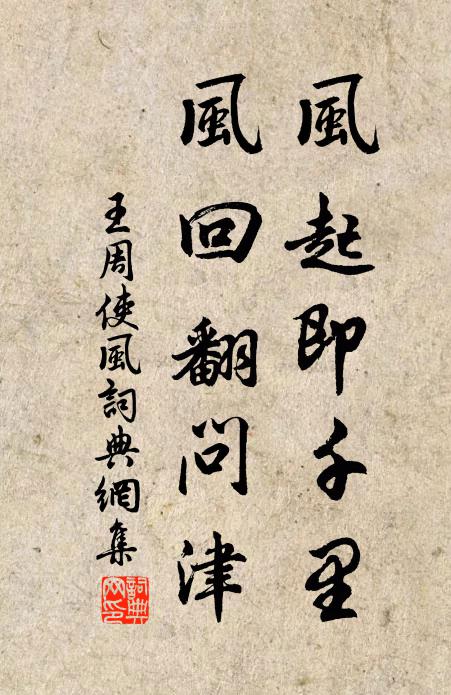 風起即千里
風回翻問津
王周使風詞典網集
詞典網印